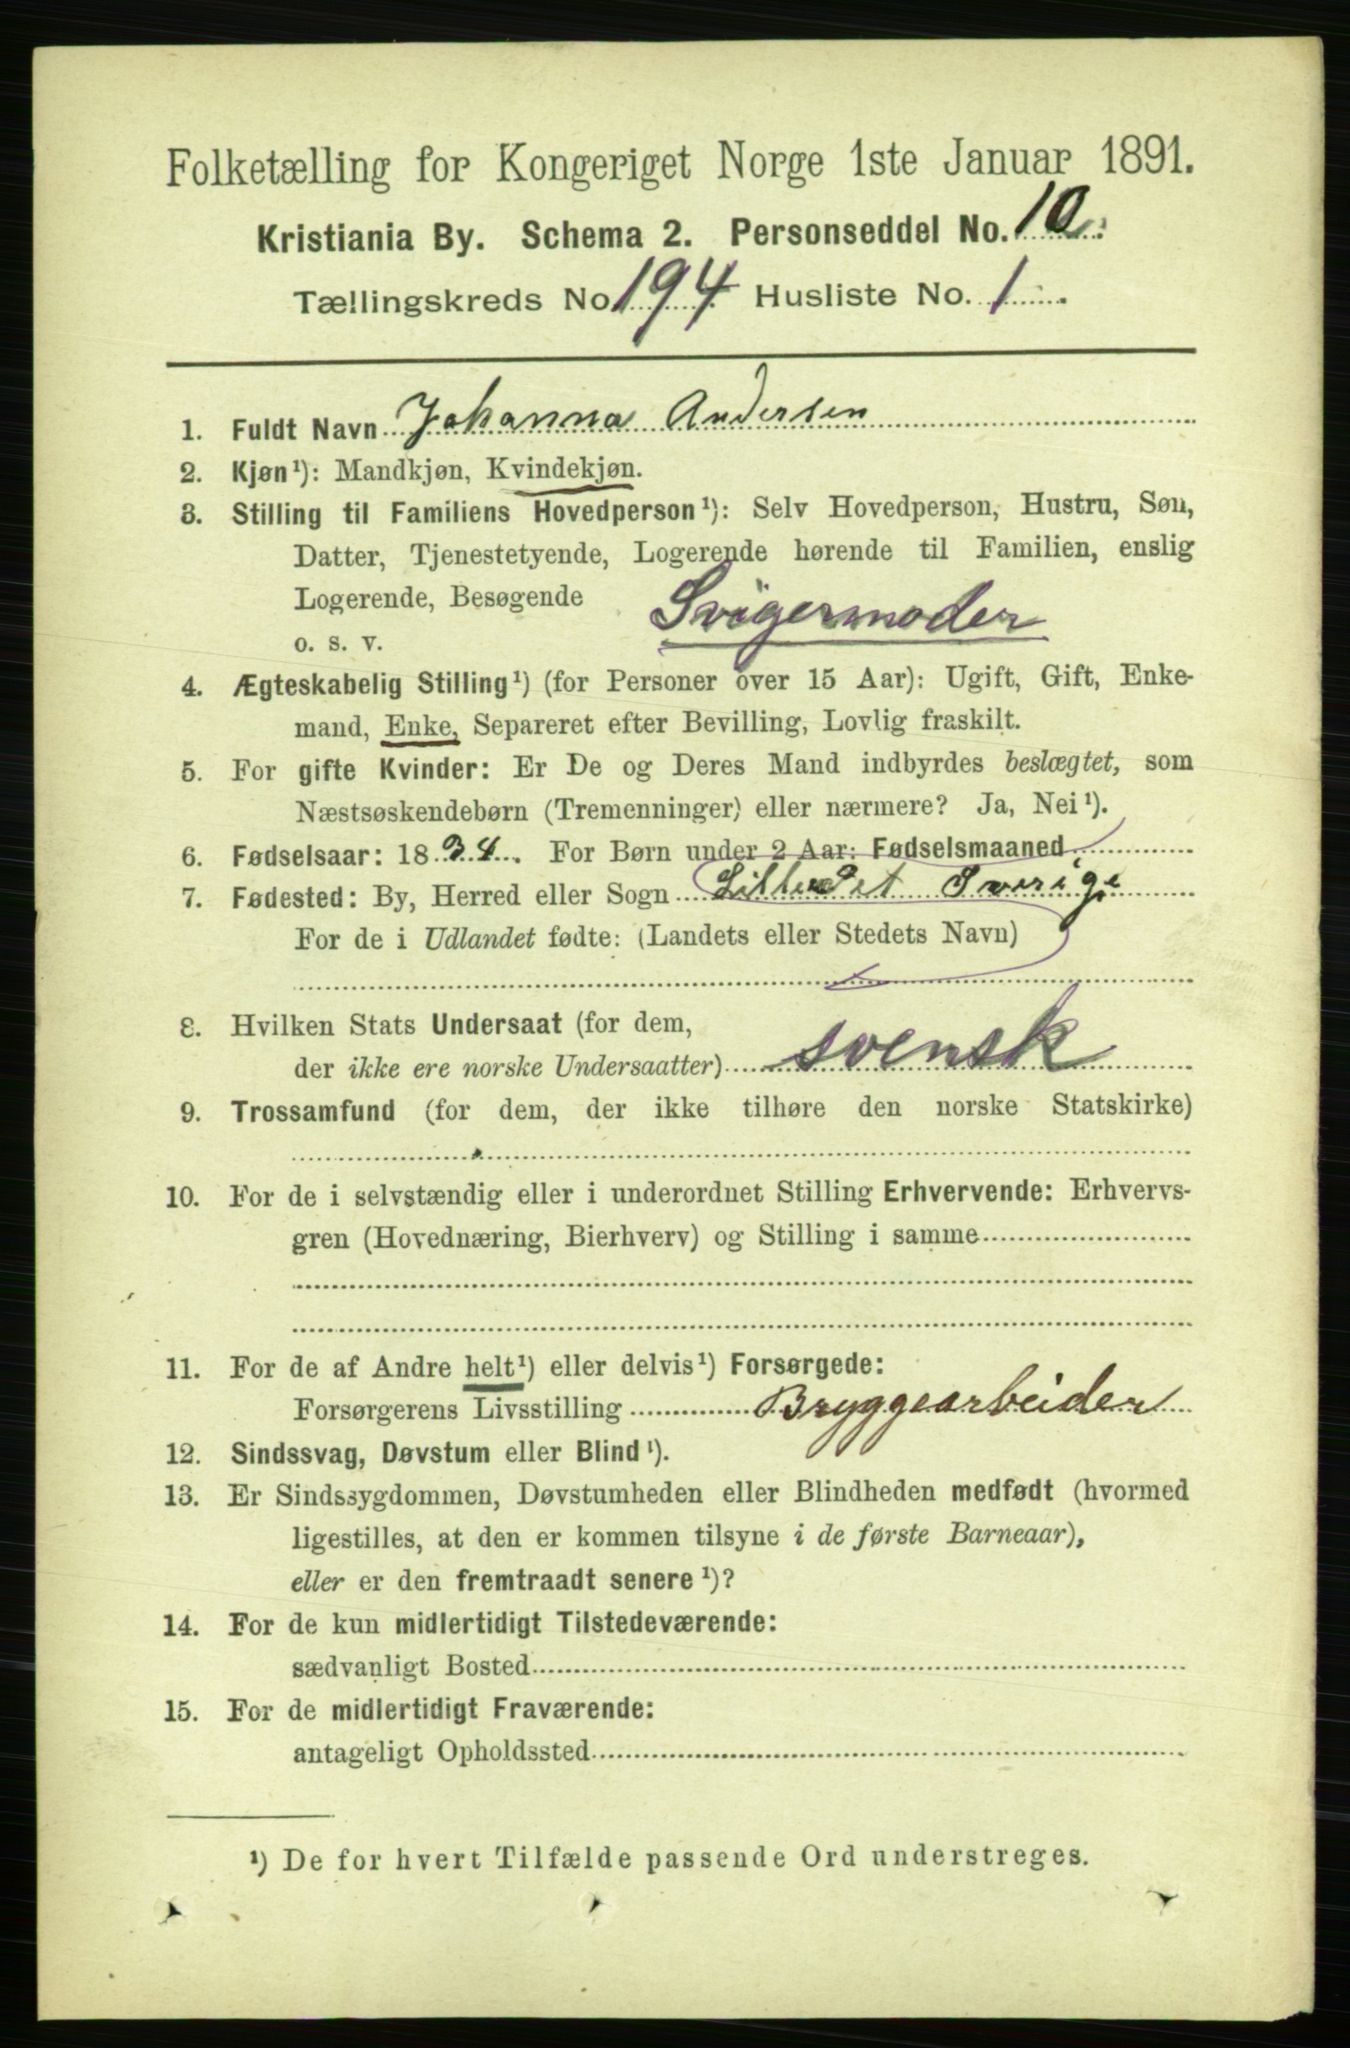 Folketælling for Kongeriget Norge 1ste Januar 1891.
Kristiania By. Schema 2. Personseddel No. 10.
Tællingskreds No 194 Husliste No. 1.
1. Fuldt Navn Johanna Andersen
2. Kjøn¹): Mandkjøn, Kvindekjøn.
3. Stilling til Familiens Hovedperson¹): Selv Hovedperson, Hustru, Søn,
Datter, Tjenestetyende, Logerende hørende til Familien, enslig
Logerende, Besøgende Svigermoder
o. s. v.
4. Ægteskabelig Stilling¹) (for Personer over 15 Aar): Ugift, Gift, Enke-
mand, Enke, Separeret efter Bevilling, Lovlig fraskilt.
5. For gifte Kvinder: Er De og Deres Mand indbyrdes beslægtet, som
Næstsøskendebørn (Tremenninger) eller nærmere? Ja, Nei¹).
6. Fødselsaar: 1834. For Børn under 2 Aar: Fødselsmaaned
7. Fødested: By, Herred eller Sogn Lilleedet Sverige
For de i Udlandet fødte: (Landets eller Stedets Navn)
8. Hvilken Stats Undersaat (for dem,
der ikke ere norske Undersaatter) svensk
9. Trossamfund (for dem, der ikke tilhøre den norske Statskirke)
10. For de i selvstændig eller i underordnet Stilling Erhvervende: Erhvervs-
gren (Hovednæring, Bierhverv) og Stilling i samme
11. For de af Andre helt¹) eller delvis¹) Forsørgede:
Forsørgerens Livsstilling Bryggearbeider
12. Sindssvag, Døvstum eller Blind¹).
13. Er Sindssygdommen, Døvstumheden eller Blindheden medfødt (hvormed
ligestilles, at den er kommen tilsyne i de første Barneaar),
eller er den fremtraadt senere¹)?
14. For de kun midlertidigt Tilstedeværende:
sædvanligt Bosted
15. For de midlertidigt Fraværende:
antageligt Opholdssted
¹) De for hvert Tilfælde passende Ord understreges.